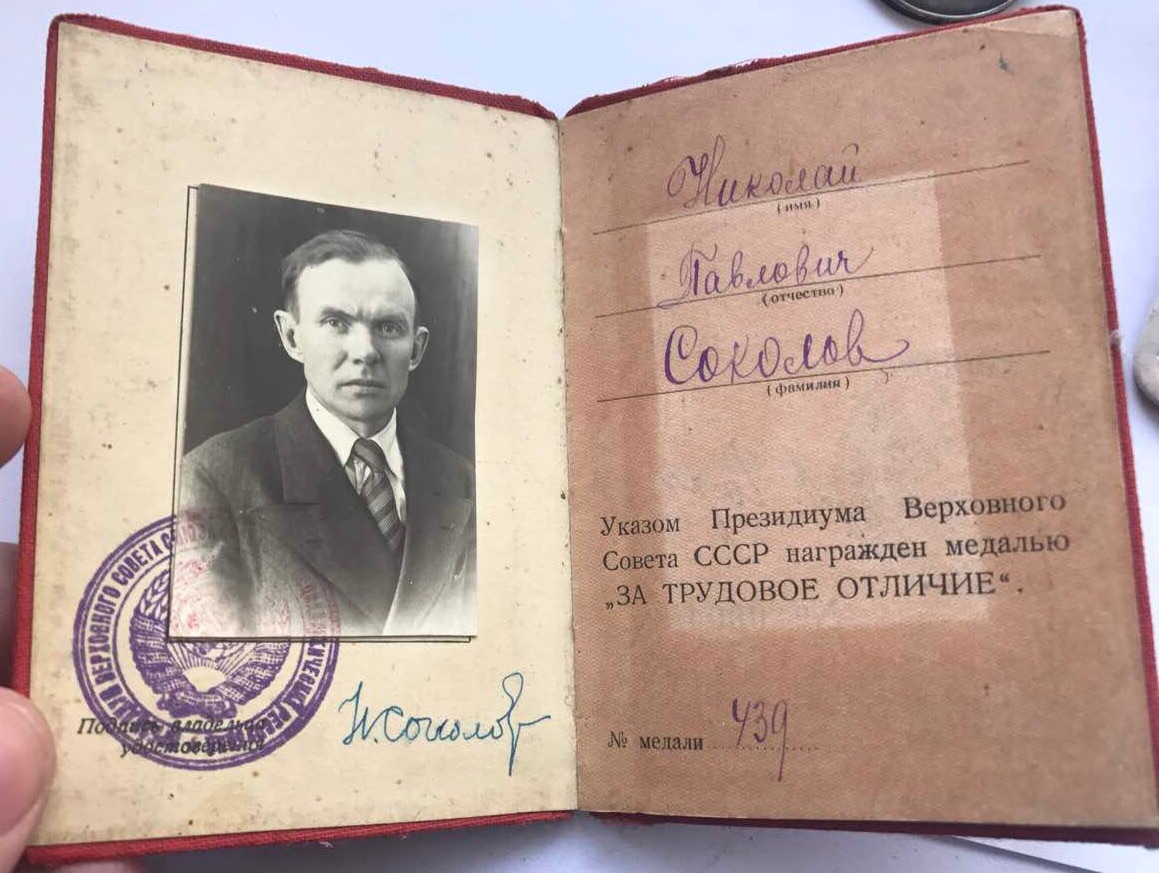 ВЕРХОВНОГО СОВЕТА
Подпись владельца
удостоверения
Н. Соколов
Николай
(имя)
Павлович
(отчество)
Соколов
(фамилия)
Указом Президиума Верховного
Совета СССР награжден медалью
„ЗА ТРУДОВОЕ ОТЛИЧИЕ“.
№ медали 439